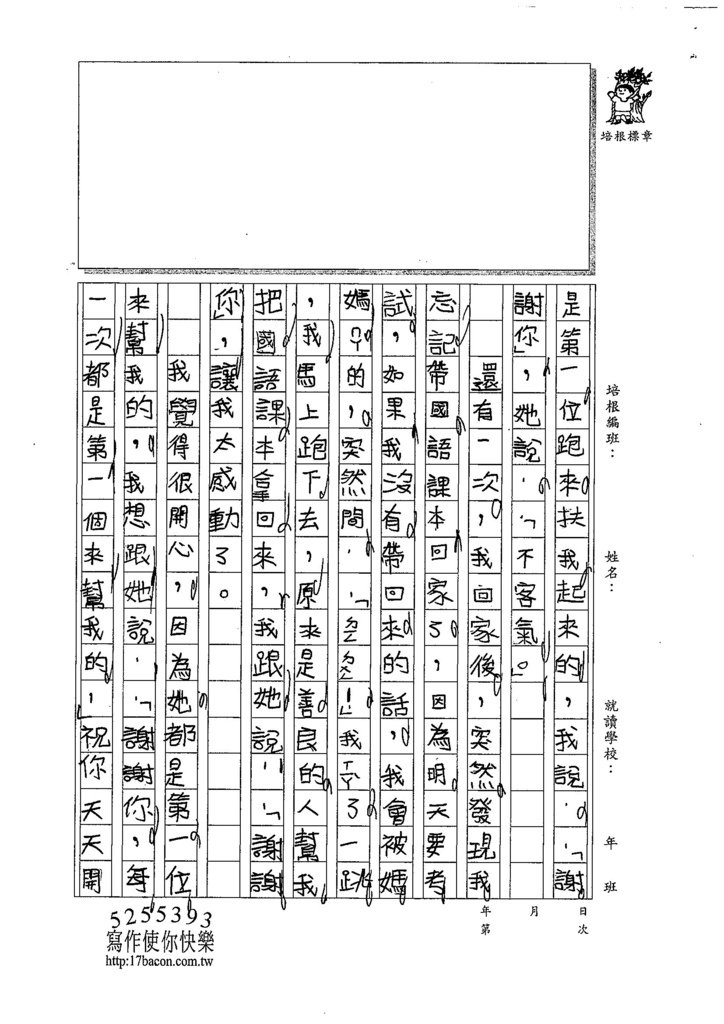 培根標章
培根編班：
姓名：
就讀學校：
年 班
年 月 日
第 次
是第一位跑來扶我起來的，我說：「謝
謝你」，她說：「不客氣。」
還有一次，我回家後，突然發現我
忘記帶國語課本回家了，因為明天要考
試，如果我沒有帶回來的話，我會被媽
媽的，突然間：「！」我了一跳
，我馬上跑下去，原來是善良的人幫我
把國語課本拿回來，我跟她說：「謝謝
你」，讓我太感動了。
我覺得很開心，因為她都是第一位
來幫我的，我想跟她說：「謝謝你，每
一次都是第一個來幫我的，」祝你天天開
5255393
寫作使你快樂
http:17bacon.com.tw